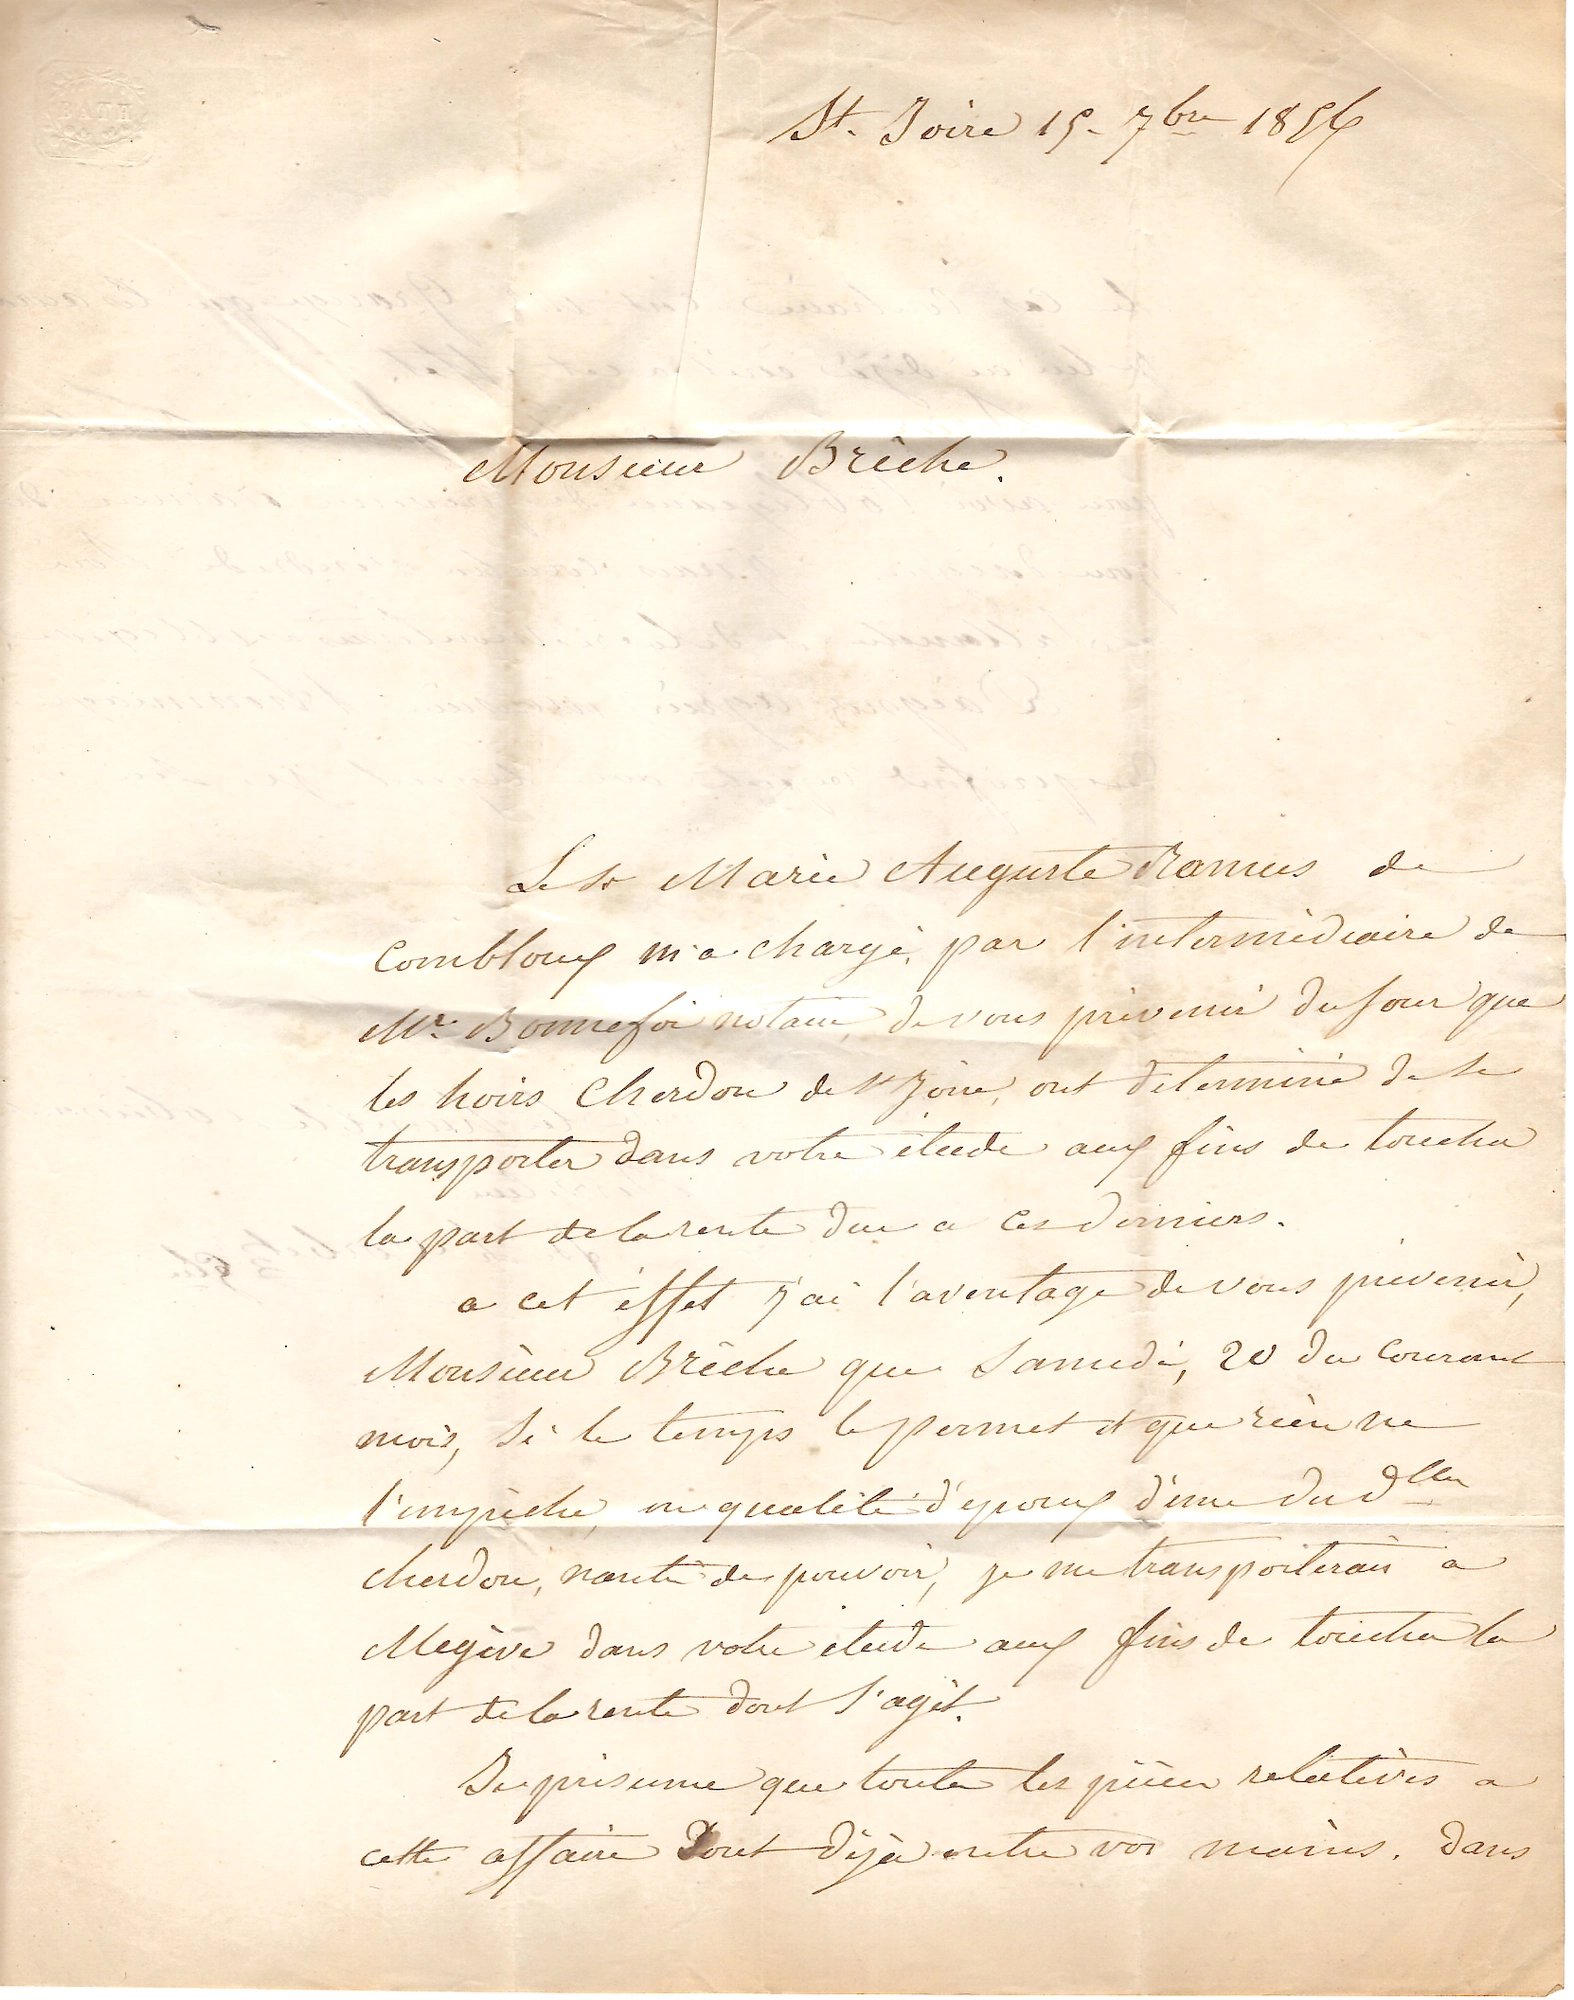 BATH
St. Joire 15. 7bre 1856
Monsieur Brêche.
Le sr Marie Auguste Ramus de
Combloux m'a chargé, par l'intermédiaire de
Mr. Bonnefoi notaire, de vous prévenir du jour que
les hoirs Cherdon de St Joire, ont déterminé de se
transporter dans votre étude aux fins de toucher
la part de la rente due a ces derniers.
a cet éffet j'ai l'aventage de vous prévenir,
Monsieur Brêche que Samedi, 20 du courant
mois, si le temps le permet et que rien ne
l'empêche, en qualité d'epoux d'une du dlles
cherdon, nanti de pouvoir, je me transporterais a
Megève dans votre étude aux fins de toucher la
part de la rente dont s'agit.
Je présume que toutes les pièces relatives a
cette affaire sont déjà entre vos mains. Dans